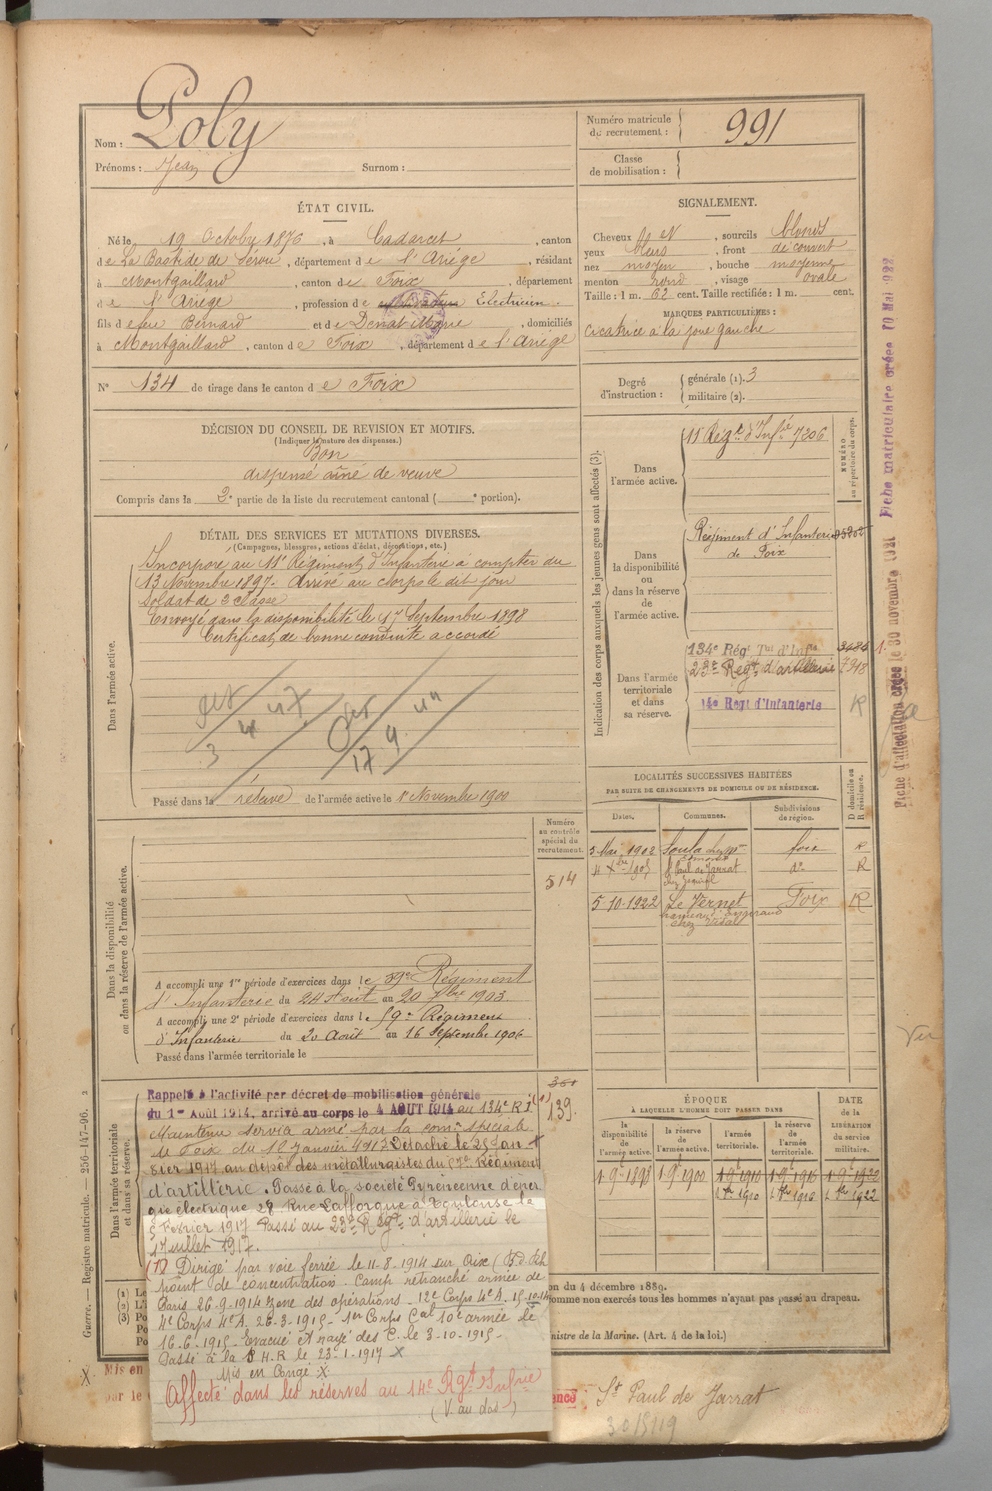 Nom : Poly
Prénoms : Jean Surnom :
Numéro matricule du recrutement : 991
Classe de mobilisation :
ÉTAT CIVIL.
Né le 19 Octobre 1876, à Cadarcet, canton
de La Bastide de Sérou, département de l'Ariège, résidant
à Montgaillard, canton de Foix, département
de l'Ariège, profession de Electricien.
fils de feu Bernard et de Denat Marie, domiciliés
à Montgaillard, canton de Foix, département de l'Ariège
N° 134 de tirage dans le canton de Foix
DÉCISION DU CONSEIL DE REVISION ET MOTIFS.
(Indiquer la nature des dispenses.)
Bon
dispensé aîné de veuve
Compris dans la 2e partie de la liste du recrutement cantonal ( e portion).
SIGNALEMENT.
Cheveux et, sourcils blonds
yeux bleus, front découvert
nez moyen, bouche moyenne
menton rond, visage ovale
Taille : 1 m. 62 cent. Taille rectifiée : 1 m. cent.
MARQUES PARTICULIÈRES :
cicatrice à la joue gauche
Degré d'instruction : générale (1). 3
militaire (2).
DÉTAIL DES SERVICES ET MUTATIONS DIVERSES.
(Campagnes, blessures, actions d'éclat, décorations, etc.)
Dans l'armée active.
Incorporé au 11e Régiment d'Infanterie à compter du
13 Novembre 1897. Arrivé au corps le dit jour
soldat de 2 classe
Envoyé dans la disponibilité le 17 Septembre 1898
Certificat de bonne conduite accordé
Passé dans la réserve de l'armée active le 1er Novembre 1900
Indication des corps auxquels les jeunes gens sont affectés (3).
NUMÉRO au répertoire du corps.
Dans l'armée active.
11e Régt d'Infie 7206
Dans la disponibilité ou dans la réserve de l'armée active.
Régiment d'Infanterie
de Foix
Dans l'armée territoriale et dans sa réserve.
134e Rég Tal d'Infie
23e Régt d'artillerie 7948
14e Regt d'Infanterie R
LOCALITÉS SUCCESSIVES HABITÉES
PAR SUITE DE CHANGEMENTS DE DOMICILE OU DE RÉSIDENCE.
Dates. Communes. Subdivisions de région. D domicile ou R résidence.
3 Mai 1902 Soula Foix R
St Paul de Jarrat do R
5-10-1922 Le Vernet Foix R
chez Vidal
Numéro au contrôle spécial du recrutement.
514
Dans la disponibilité ou dans la réserve de l'armée active.
A accompli une 1re période d'exercices dans le 59e Régiment
d'Infanterie du 24 Août au 20 7bre 1903.
A accompli une 2e période d'exercices dans le 59e Régiment
d'Infanterie du 20 Août au 16 Septembre 1906
Passé dans l'armée territoriale le
Dans l'armée territoriale et dans sa réserve.
Rappelé à l'activité par décret de mobilisation générale
du 1er Août 1914, arrivé au corps le 4 AOUT 1914 au 134e R I (1)
139.
Maintenu service armé par la comon spéciale
de Foix du 10 Janvier 1917 Détaché le 25 Jan
vier 1917 au dépôt des métallurgistes du 57e Régiment
d'artillerie. Passé à la société Pyrénéenne d'éner
gie électrique 28 Rue Lafforgue à Toulouse le
5 Février 1917 Passé au 23e Régt d'artillerie le
1 Juillet 1917.
(1) Dirigé par voie ferrée le 11-8-1914 sur Aix
point de concentration. Camp retranché armée de
Paris 26-9-1914 zone des opérations - 12e Corps 4e A. 15-10-14
4e Corps 4e A. 26-3-1915 - 1er Corps Cal 10e armée le
16-6-1915 - Evacué et rayé des C. le 3-10-1915 -
Passé à la S H R le 23-1-1917 X
Mis en Congé X
Affecté dans les réserves au 14e Rgt Infie
(V. au dos)
ÉPOQUE
À LAQUELLE L'HOMME DOIT PASSER DANS
la disponibilité de l'armée active. la réserve de l'armée active. l'armée territoriale. la réserve de l'armée territoriale.
DATE de la LIBÉRATION du service militaire.
1-9-1898 1-9-1900 1-9-1910 1-9-1916 1-9-1922
on du 4 décembre 1889.
omme non exercés tous les hommes n'ayant pas passé au drapeau.
nistre de la Marine. (Art. 4 de la loi.)
X Mis en
par le
St Paul de Jarrat
Guerre. — Registre matricule. — 256-147-96. 2
Fiche d'affectation créée le 30 novembre 1921 Fiche matriculaire créée 10 Mai 922
Vu